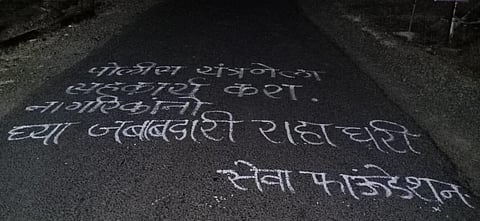 पोलीस यंत्रणेला
सहकार्य करा.
नागरिकांनो
घ्या जबाबदारी राहा घरी
सेवा फाऊंडेशन